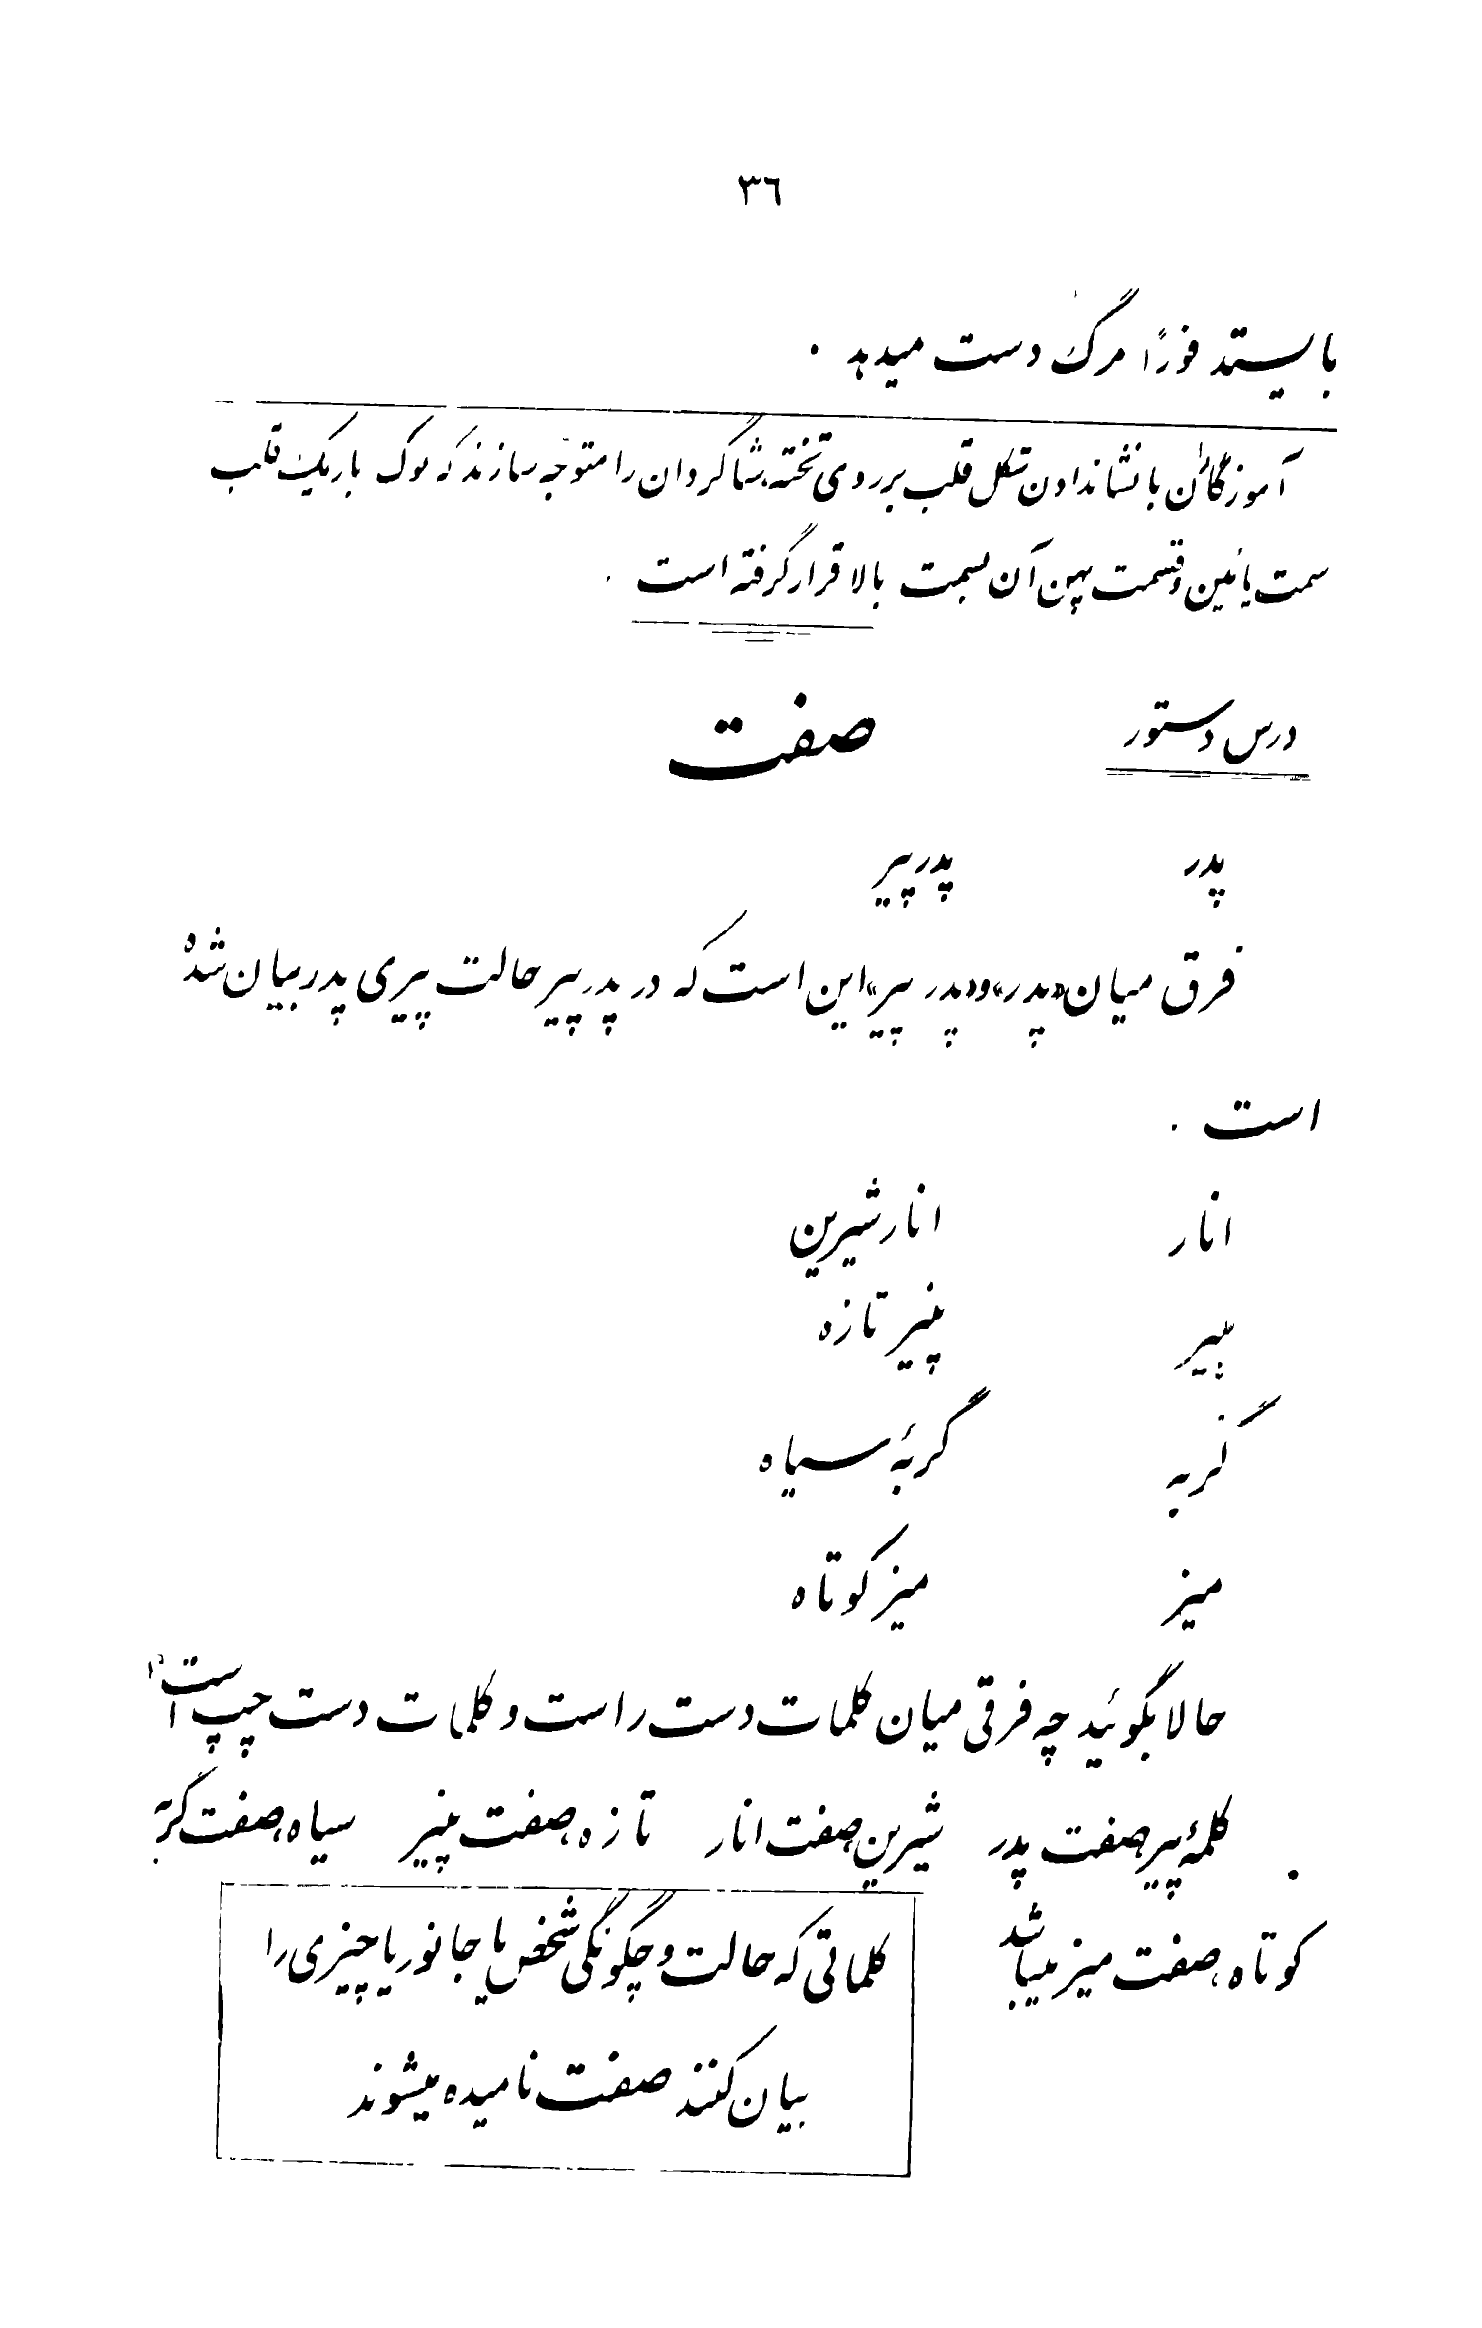 ۳٦
بایستد فوراً مرگ دست میدهد .
آموزگاران با نشاندادن شکل قلب بر روی تخته، شاگردان را متوجه سازند که نوک باریک قلب
سمت پائین و قسمت پهن آن بسمت بالا قرار گرفته است .
درس دستور صفت
پدر پدر پیر
فرق میان «پدر» و «پدر پیر» این است که در پدر پیر حالت پیری پدر بیان شده
است .
انار انار شیرین
پنیر پنیر تازه
گربه گربهٔ سیاه
میز میز کوتاه
حالا بگوئید چه فرقی میان کلمات دست راست و کلمات دست چپ است؟
کلمهٔ پیر، صفت پدر شیرین، صفت انار تازه، صفت پنیر سیاه، صفت گربه
کوتاه، صفت میز میباشد .
کلماتی که حالت و چگونگی شخص یا جانور یا چیزی را
بیان کنند صفت نامیده میشوند